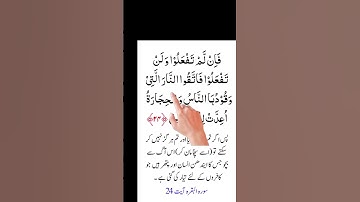 فَاِنْ لَّمْ تَفْعَلُوْا وَلَنْ
تَفْعَلُوْا فَاتَّقُوا النَّارَ الَّتِیْ
وَقُوْدُہَا النَّاسُ وَالْحِجَارَۃُ
اُعِدَّتْ ﴿۲۴﴾
پس اگر تم نے اور تم ہرگز نہیں کر
سکتے تو (اسے سچا مان کر) اس آگ سے
بچو جس کا ایندھن انسان اور پتھر ہیں جو
کافروں کے لئے تیار کی گئی ہے
سورہ البقرہ آیت 24